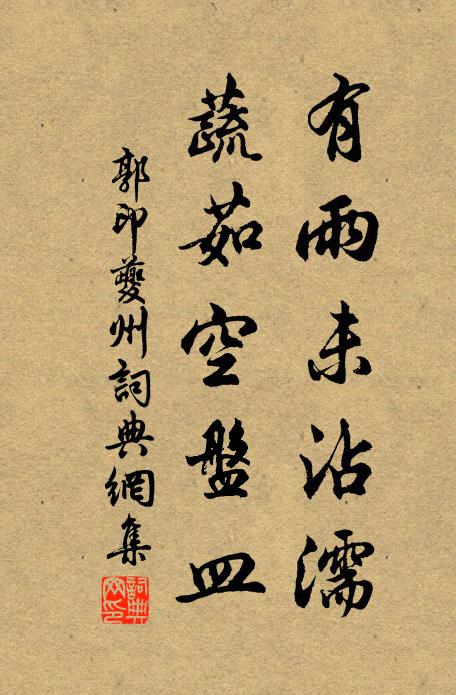 有雨未沾濡
蔬茹空盤皿
郭印夔州詞典網集
詞典網印